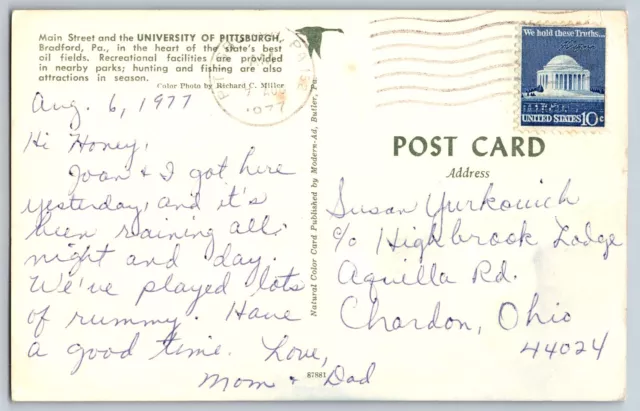 Main Street and the UNIVERSITY OF PITTSBURGH,
Bradford, Pa., in the heart of the state's best
oil fields. Recreational facilities are provided
in nearby parks; hunting and fishing are also
attractions in season.
Color Photo by Richard C. Miller
Aug. 6, 1977
Hi Honey,
Joan & I got here
yesterday, and it's
been raining all
night and day.
We've played lots
of rummy. Have
a good time. Love,
Mom & Dad
Natural Color Card Published by Modern-Ad, Butler, Pa.
87881
We hold these Truths...
UNITED STATES 10c
POST CARD
Address
Susan Yurkovich
c/o Highbrook Lodge
Aquilla Rd.
Chardon, Ohio
44024